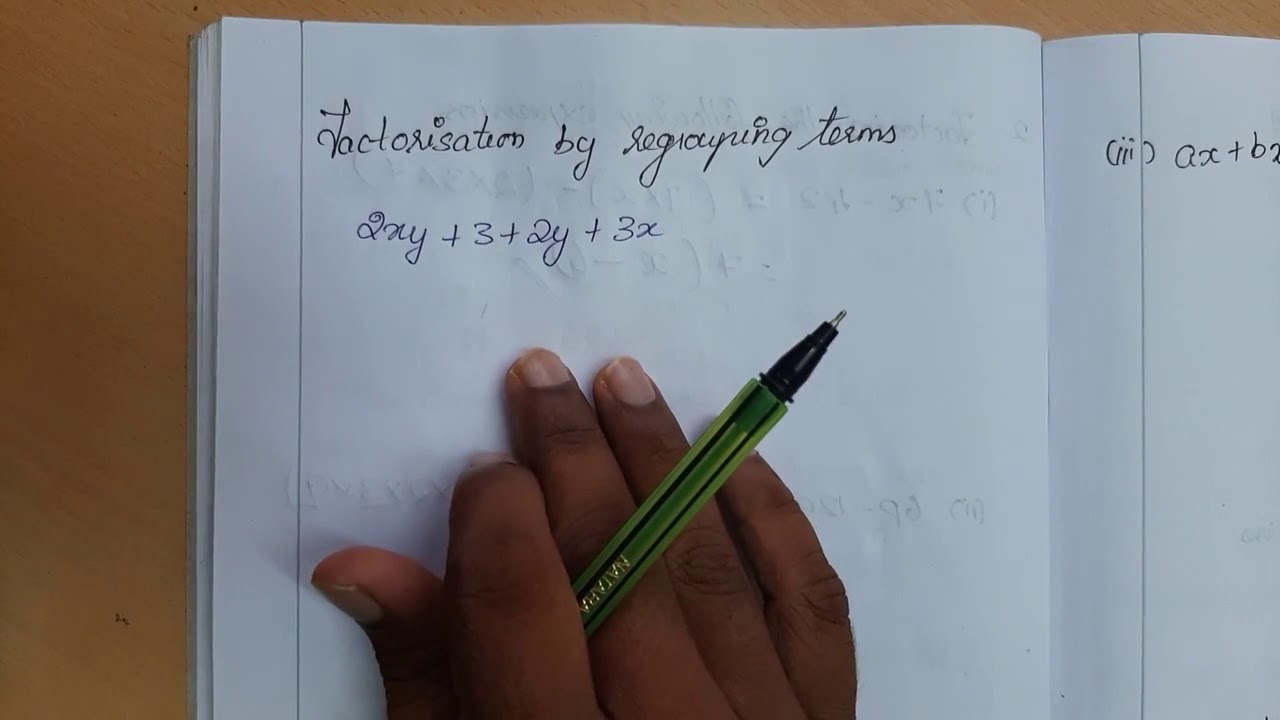 Factorisation by regrouping terms
2xy + 3 + 2y + 3x
(iii) ax + bx
NATARA